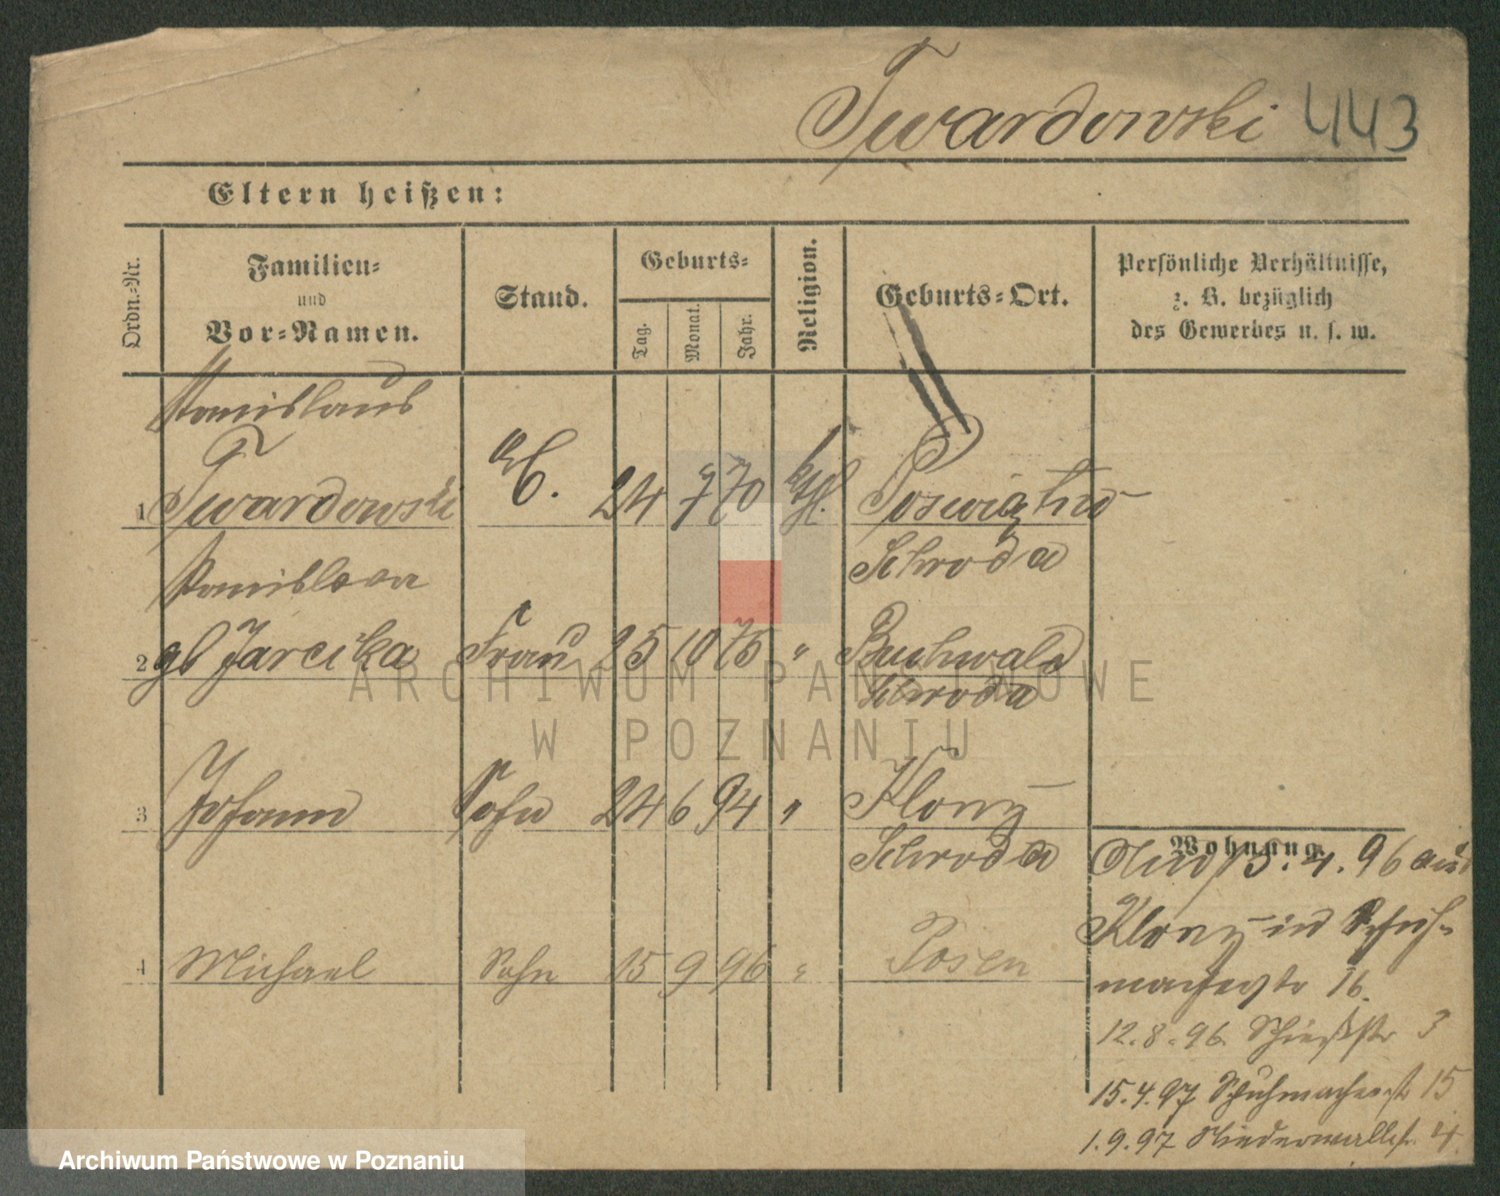 Twardowski 443
Eltern heißen:
Ordn.-Nr.
Familien-
und
Vor-Namen.
Stand.
Geburts-
Tag.
Monat.
Jahr.
Religion.
Geburts-Ort.
Persönliche Verhältnisse,
z. B. bezüglich
des Gewerbes u. s. w.
Stanislaus
1 Twardowski 24 7 70 kth.
Schroda
Stanislava
2 gb Jarcika Frau 25 10 75 " Buchwald
Schroda
3 Johann Sohn 24 6 94 " Klony
Schroda
4 Michael Sohn 15 9 96 " Posen
Wohnung
96 aus
Klony in Schuh-
macherstr 16.
12.8.96. Schießstr 3
15.4.97 Schuhmacherstr 15
1.9.97 Niederwallstr. 4
ARCHIWUM PAŃSTWOWE
W POZNANIU
Archiwum Państwowe w Poznaniu